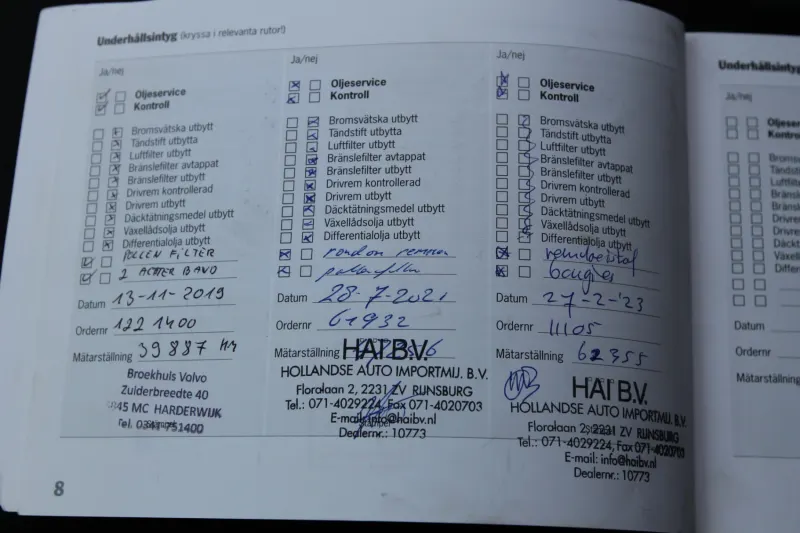 Underhållsintyg (kryssa i relevanta rutor!)
Ja/nej
Oljeservice
Kontroll
Bromsvätska utbytt
Tändstift utbytta
Luftfilter utbytt
Bränslefilter avtappat
Bränslefilter utbytt
Drivrem kontrollerad
Drivrem utbytt
Däcktätningsmedel utbytt
Växellådsolja utbytt
Differentialolja utbytt
POLLEN FILTER
2 ACHTER BAVO
Datum 13-11-2019
Ordernr 122 1400
Mätarställning 39887 KM
Broekhuis Volvo
Zuiderbreedte 40
3845 MC HARDERWIJK
Tel. 0341-751400
Ja/nej
Oljeservice
Kontroll
Bromsvätska utbytt
Tändstift utbytta
Luftfilter utbytt
Bränslefilter avtappat
Bränslefilter utbytt
Drivrem kontrollerad
Drivrem utbytt
Däcktätningsmedel utbytt
Växellådsolja utbytt
Differentialolja utbytt
rondom remmen
pollenfilter
Datum 28-7-2021
Ordernr 61932
Mätarställning
HAI B.V.
HOLLANDSE AUTO IMPORTMIJ. B.V.
Floralaan 2, 2231 ZV RIJNSBURG
Tel.: 071-4029224, Fax 071-4020703
E-mail: info@haibv.nl
Dealernr.: 10773
Ja/nej
Oljeservice
Kontroll
Bromsvätska utbytt
Tändstift utbytta
Luftfilter utbytt
Bränslefilter avtappat
Bränslefilter utbytt
Drivrem kontrollerad
Drivrem utbytt
Däcktätningsmedel utbytt
Växellådsolja utbytt
Differentialolja utbytt
remvloeistof
bougies
Datum 27-2-'23
Ordernr 11105
Mätarställning 62355
HAI B.V.
HOLLANDSE AUTO IMPORTMIJ. B.V.
Floralaan 2, 2231 ZV RIJNSBURG
Tel.: 071-4029224, Fax 071-4020703
E-mail: info@haibv.nl
Dealernr.: 10773
8
Underhållsintyg
Ja/nej
Datum
Ordernr
Mätarställning